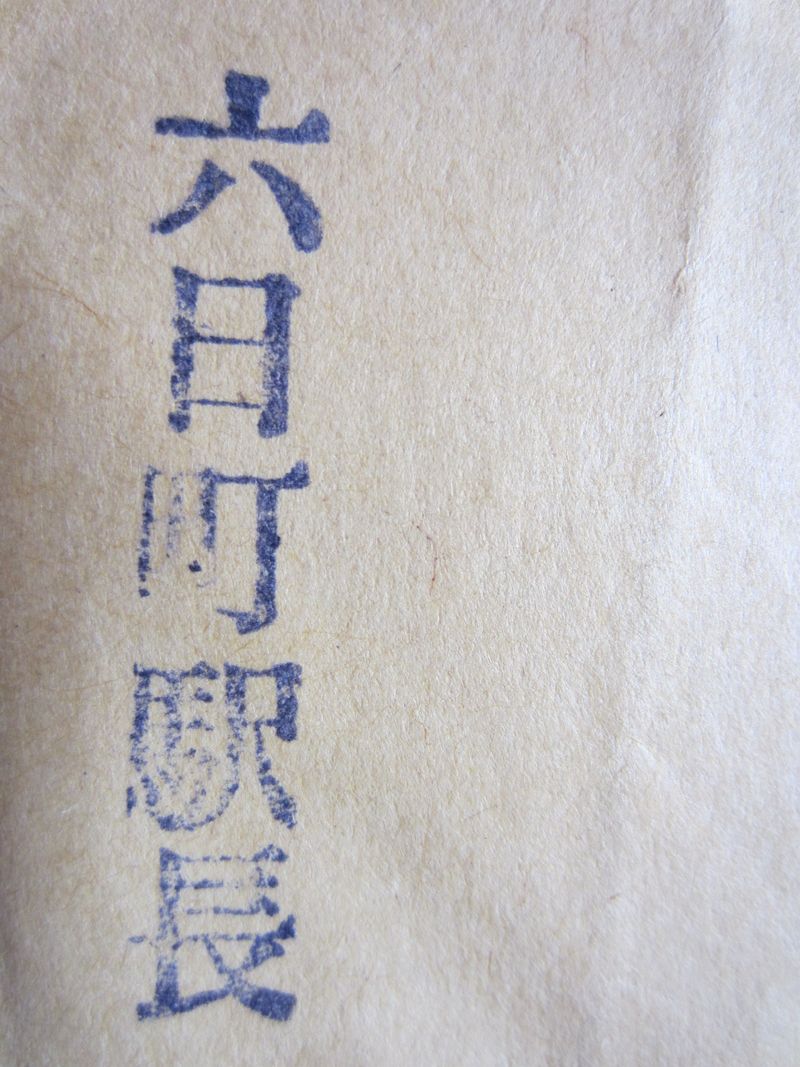 六日町駅長